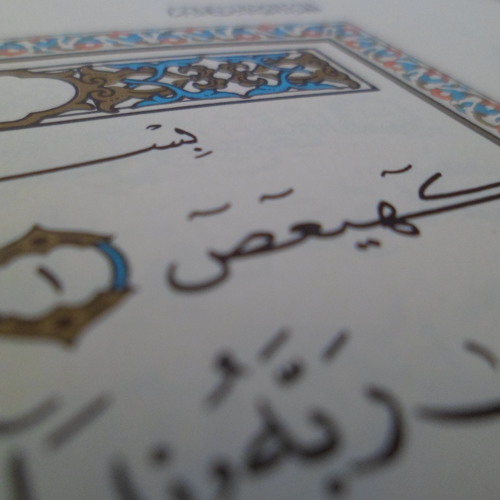 بِسْـ
كٓهيعٓصٓ ١
رَبَّهُۥ